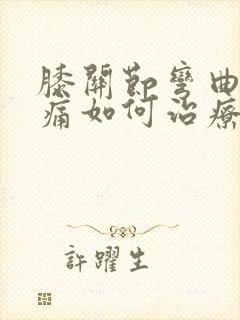 膝關節彎曲
痛如何治療
許躍生